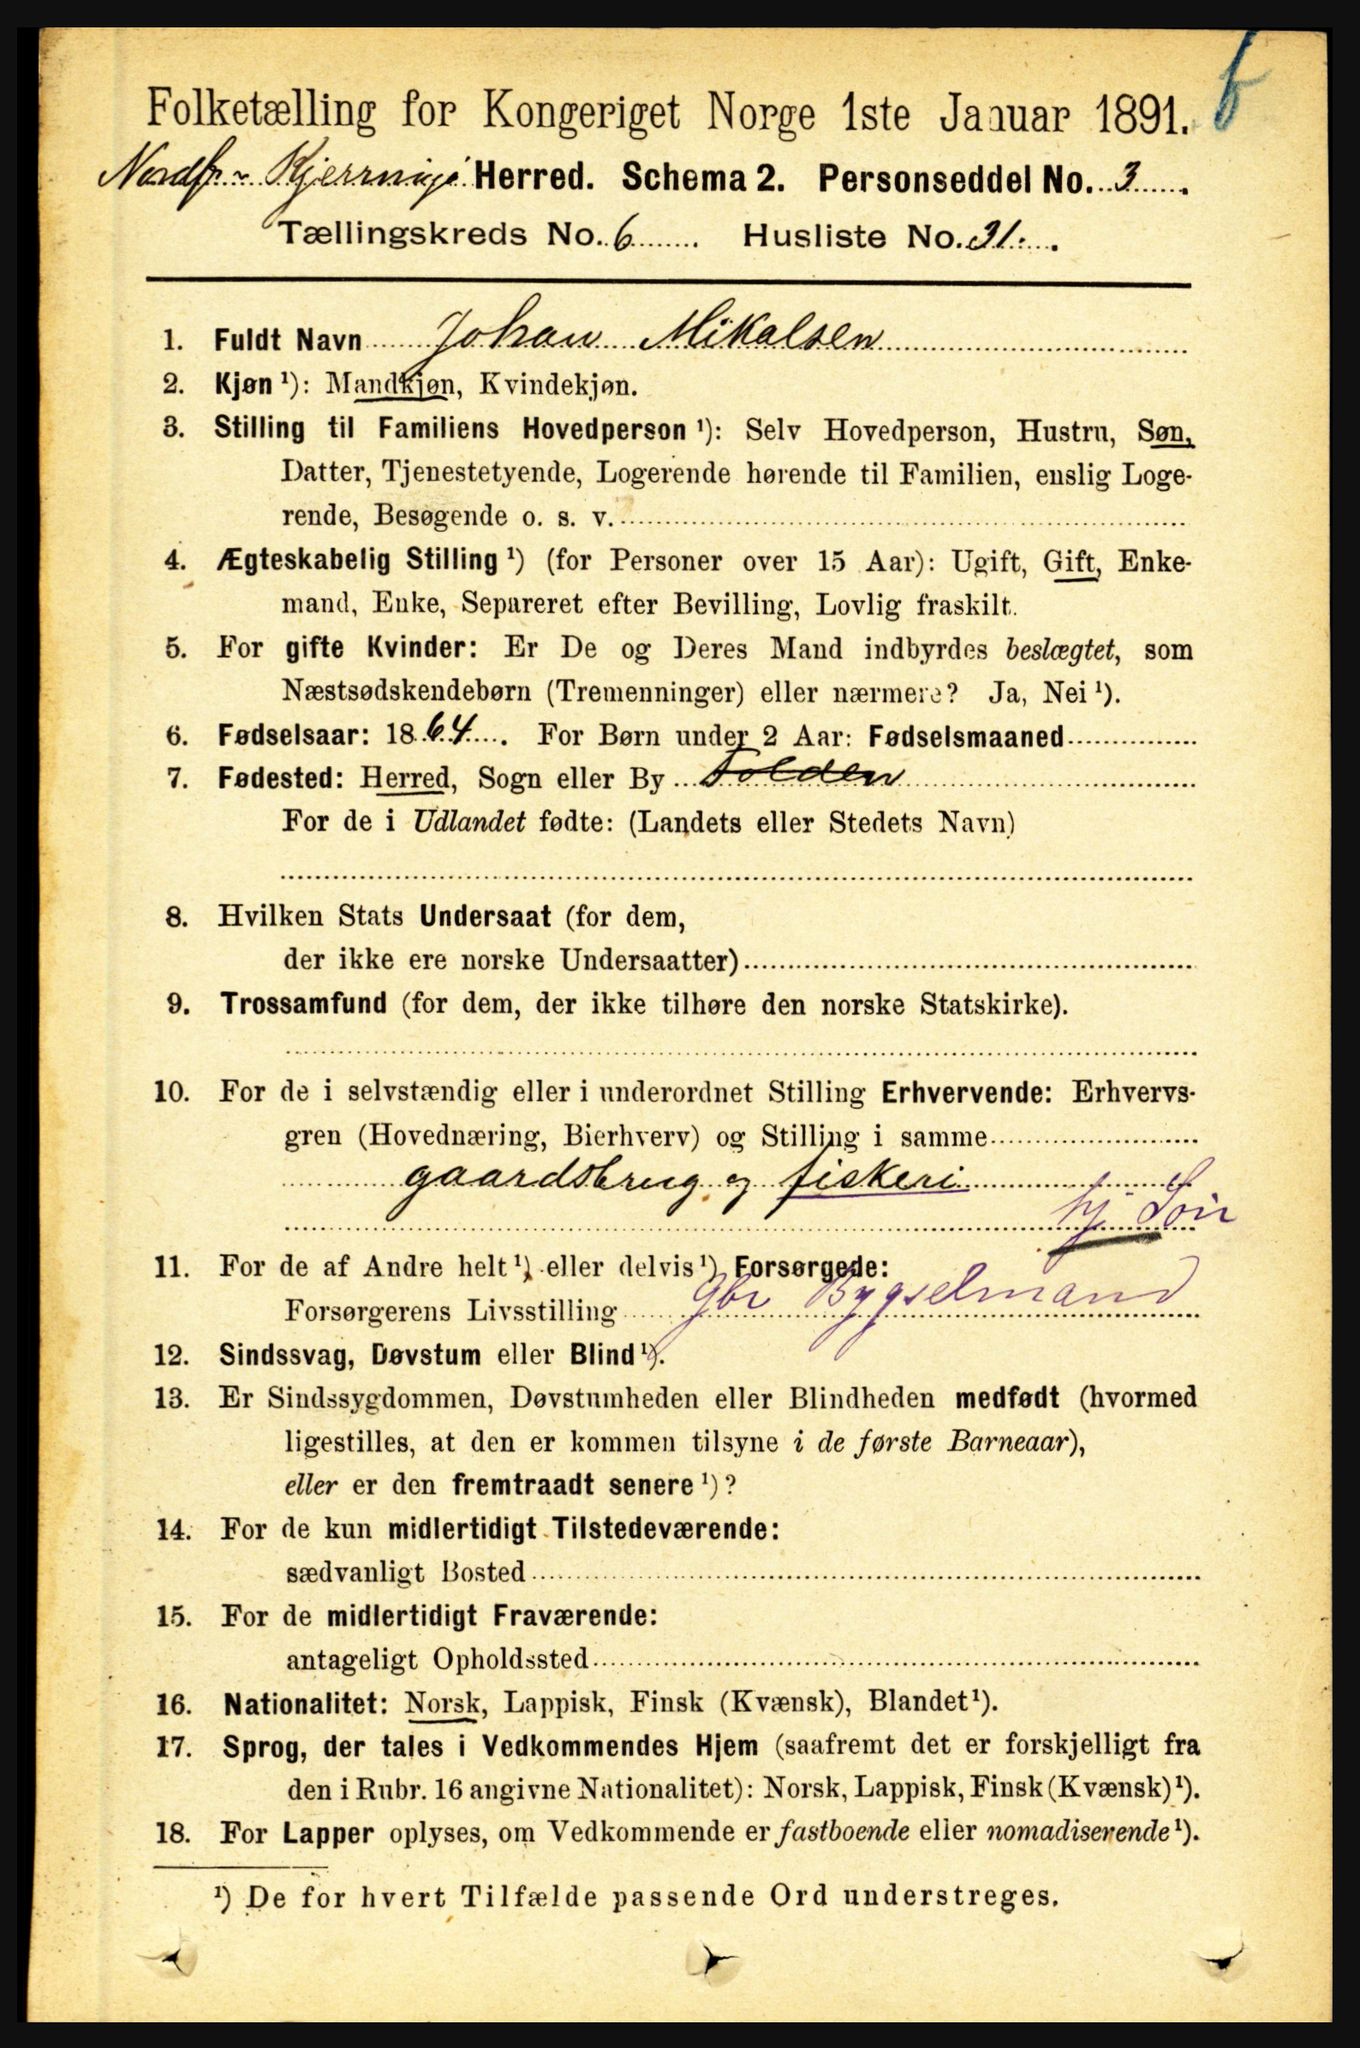 b
Folketælling for Kongeriget Norge 1ste Januar 1891.
Nordf.- Kjerringö Herred. Schema 2. Personseddel No. 3.
Tællingskreds No. 6. Husliste No. 31.
1. Fuldt Navn Johan Mikalsen
2. Kjøn ¹): Mandkjøn, Kvindekjøn.
3. Stilling til Familiens Hovedperson ¹): Selv Hovedperson, Hustru, Søn,
Datter, Tjenestetyende, Logerende hørende til Familien, enslig Loge-
rende, Besøgende o. s. v.
4. Ægteskabelig Stilling ¹) (for Personer over 15 Aar): Ugift, Gift, Enke-
mand, Enke, Separeret efter Bevilling, Lovlig fraskilt.
5. For gifte Kvinder: Er De og Deres Mand indbyrdes beslægtet, som
Næstsødskendebørn (Tremenninger) eller nærmere? Ja, Nei ¹).
6. Fødselsaar: 1864. For Børn under 2 Aar: Fødselsmaaned
7. Fødested: Herred, Sogn eller By Folden
For de i Udlandet fødte: (Landets eller Stedets Navn)
8. Hvilken Stats Undersaat (for dem,
der ikke ere norske Undersaatter)
9. Trossamfund (for dem, der ikke tilhøre den norske Statskirke).
10. For de i selvstændig eller i underordnet Stilling Erhvervende: Erhvervs-
gren (Hovednæring, Bierhverv) og Stilling i samme
gaardsbrug og fiskeri
hj Søn
11. For de af Andre helt ¹) eller delvis ¹) Forsørgede:
Forsørgerens Livsstilling Gbr Bygselmand
12. Sindssvag, Døvstum eller Blind ¹).
13. Er Sindssygdommen, Døvstumheden eller Blindheden medfødt (hvormed
ligestilles, at den er kommen tilsyne i de første Barneaar),
eller er den fremtraadt senere ¹)?
14. For de kun midlertidigt Tilstedeværende:
sædvanligt Bosted
15. For de midlertidigt Fraværende:
antageligt Opholdssted
16. Nationalitet: Norsk, Lappisk, Finsk (Kvænsk), Blandet ¹).
17. Sprog, der tales i Vedkommendes Hjem (saafremt det er forskjelligt fra
den i Rubr. 16 angivne Nationalitet): Norsk, Lappisk, Finsk (Kvænsk) ¹).
18. For Lapper oplyses, om Vedkommende er fastboende eller nomadiserende ¹).
¹) De for hvert Tilfælde passende Ord understreges.